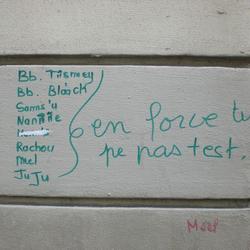 Bb. Tismey
Bb. Blàck
Sams'u
Nanïïe
Rachou
Mel
JuJu
en force tu
pe pas test.